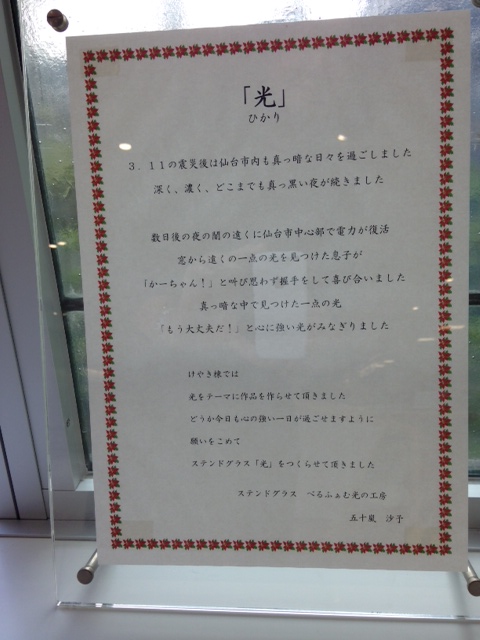 「光」
ひかり
3.11の震災後は仙台市内も真っ暗な日々を過ごしました
深く、濃く、どこまでも真っ黒い夜が続きました
数日後の夜の闇の遠くに仙台市中心部で電力が復活
窓から遠くの一点の光を見つけた息子が
「かーちゃん!」と叫び思わず握手をして喜び合いました
真っ暗な中で見つけた一点の光
「もう大丈夫だ!」と心に強い光がみなぎりました
けやき棟では
光をテーマに作品を作らせて頂きました
どうか今日も心の強い一日が過ごせますように
願いをこめて
ステンドグラス「光」をつくらせて頂きました
ステンドグラス べるふぁむ光の工房
五十嵐 沙予